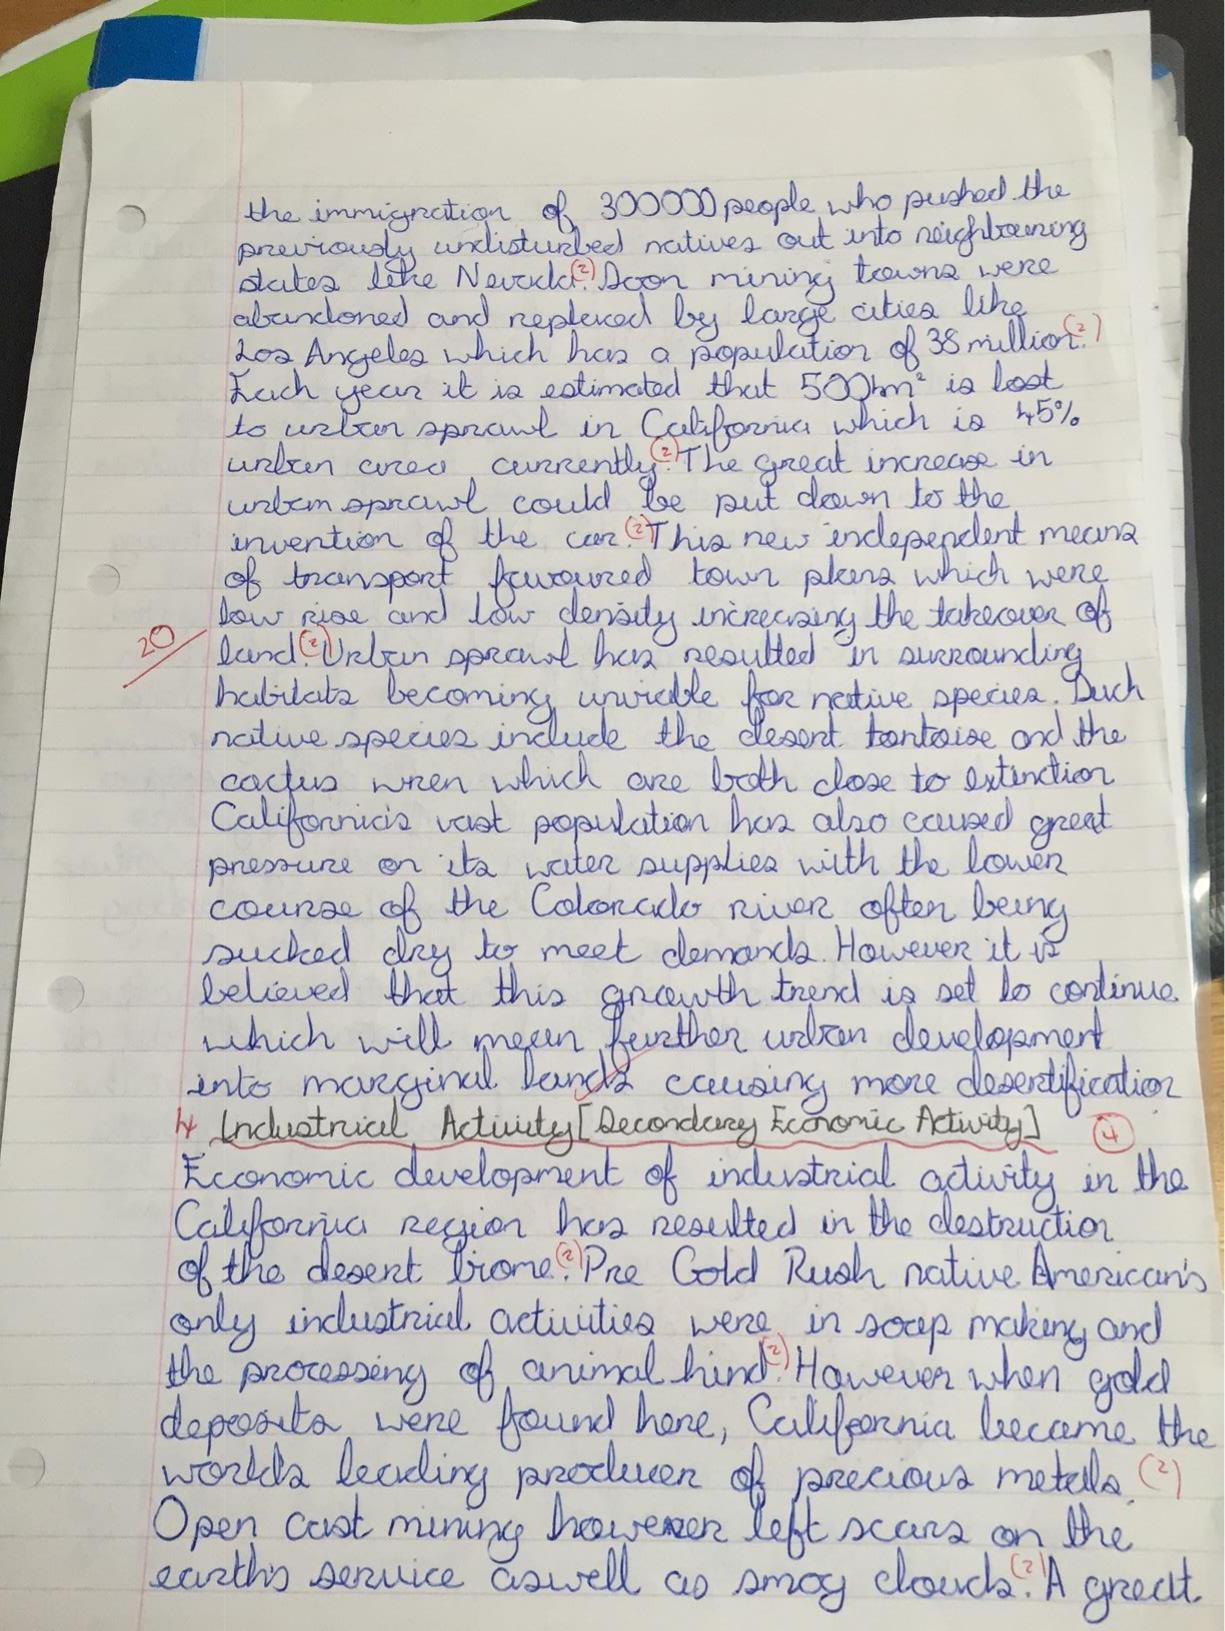 the immigration of 300000 people who pushed the
previously undisturbed natives out into neighbouring
states like Nevada. (2) Soon mining towns were
abandoned and replaced by large cities like
Los Angeles which has a population of 38 million. (2)
Each year it is estimated that 500km² is lost
to urban sprawl in California which is 45%
urban area currently. (2) The great increase in
urban sprawl could be put down to the
invention of the car. (2) This new independent means
of transport favoured town plans which were
low rise and low density increasing the takeover of
20 land. (2) Urban sprawl has resulted in surrounding
habitats becoming unviable for native species. Such
native species include the desert tortoise and the
cactus wren which are both close to extinction
California's vast population has also caused great
pressure on its water supplies with the lower
course of the Colorado river often being
sucked dry to meet demands. However it is
believed that this growth trend is set to continue
which will mean further urban development
into marginal lands causing more desertification
4 Industrial Activity [Secondary Economic Activity] 4
Economic development of industrial activity in the
California region has resulted in the destruction
of the desert biome. (2) Pre Gold Rush native American's
only industrial activities were in soap making and
the processing of animal hind. (2) However when gold
deposits were found here, California became the
worlds leading producer of precious metals. (2)
Open cast mining however left scars on the
earth's service aswell as smog clouds. (2) A great